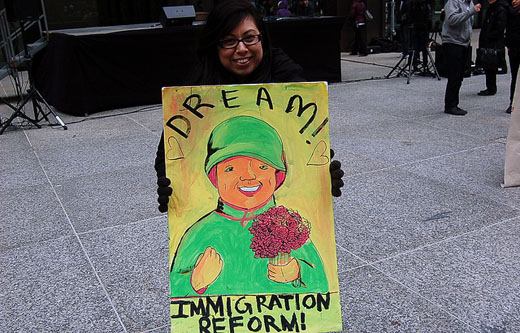 DREAM!
IMMIGRATION
REFORM!